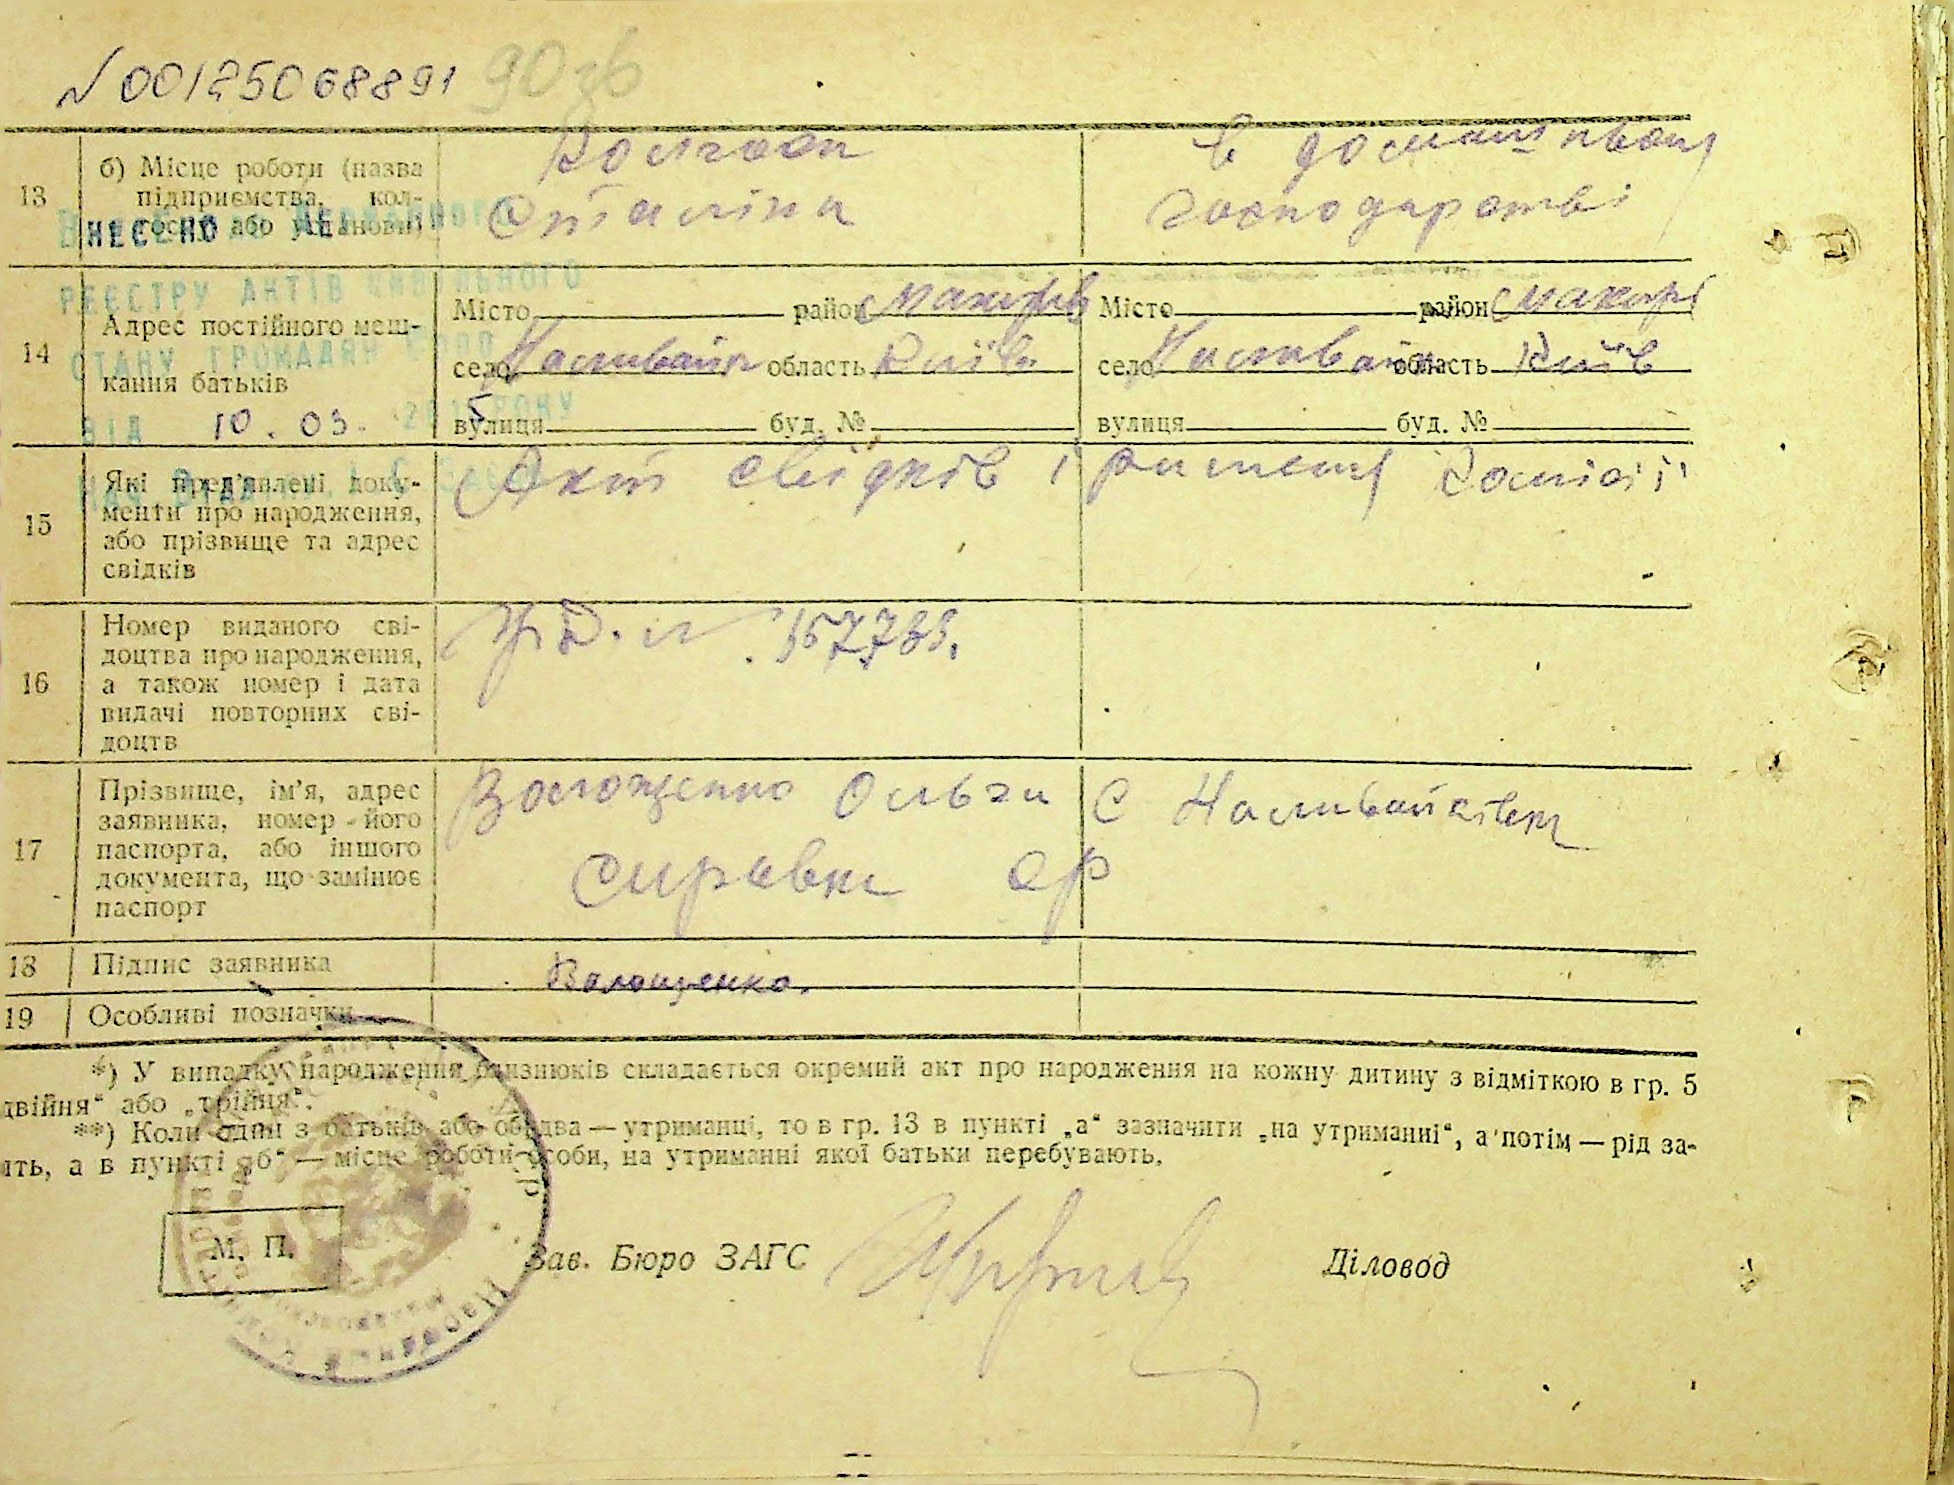 N 00125068891 90 зв
13 б) Місце роботи (назва підприємства, колгоспу або установи)
Колгосп Сталіна
в домашньом господарстві
ВНЕСЕНО ДО ДЕРЖАВНОГО
РЕЄСТРУ АКТІВ ЦИВІЛЬНОГО
СТАНУ ГРОМАДЯН
ВІД 10.03. РОКУ
14 Адрес постійного мешкання батьків
Місто район Макарів
село Наливайк область Київ
вулиця буд. №
Місто район Макарі
село Наливайк область Київ
вулиця буд. №
15 Які пред'явлені документи про народження, або прізвище та адрес свідків
Акт свідків і комісії
16 Номер виданого свідоцтва про народження, а також номер і дата видачі повторних свідоцтв
17 Прізвище, ім'я, адрес заявника, номер його паспорта, або іншого документа, що замінює паспорт
Волощенко Ольга С Наливайківка
справка ср
18 Підпис заявника
Волощенко.
19 Особливі позначки
*) У випадку народження близнюків складається окремий акт про народження на кожну дитину з відміткою в гр. 5
двійня" або „трійня".
**) Коли один з батьків або обидва — утриманці, то в гр. 13 в пункті „а" зазначити „на утриманні", а потім — рід за-
ять, а в пункті „б" — місце роботи особи, на утриманні якої батьки перебувають.
М. П.
Зав. Бюро ЗАГС
Діловод